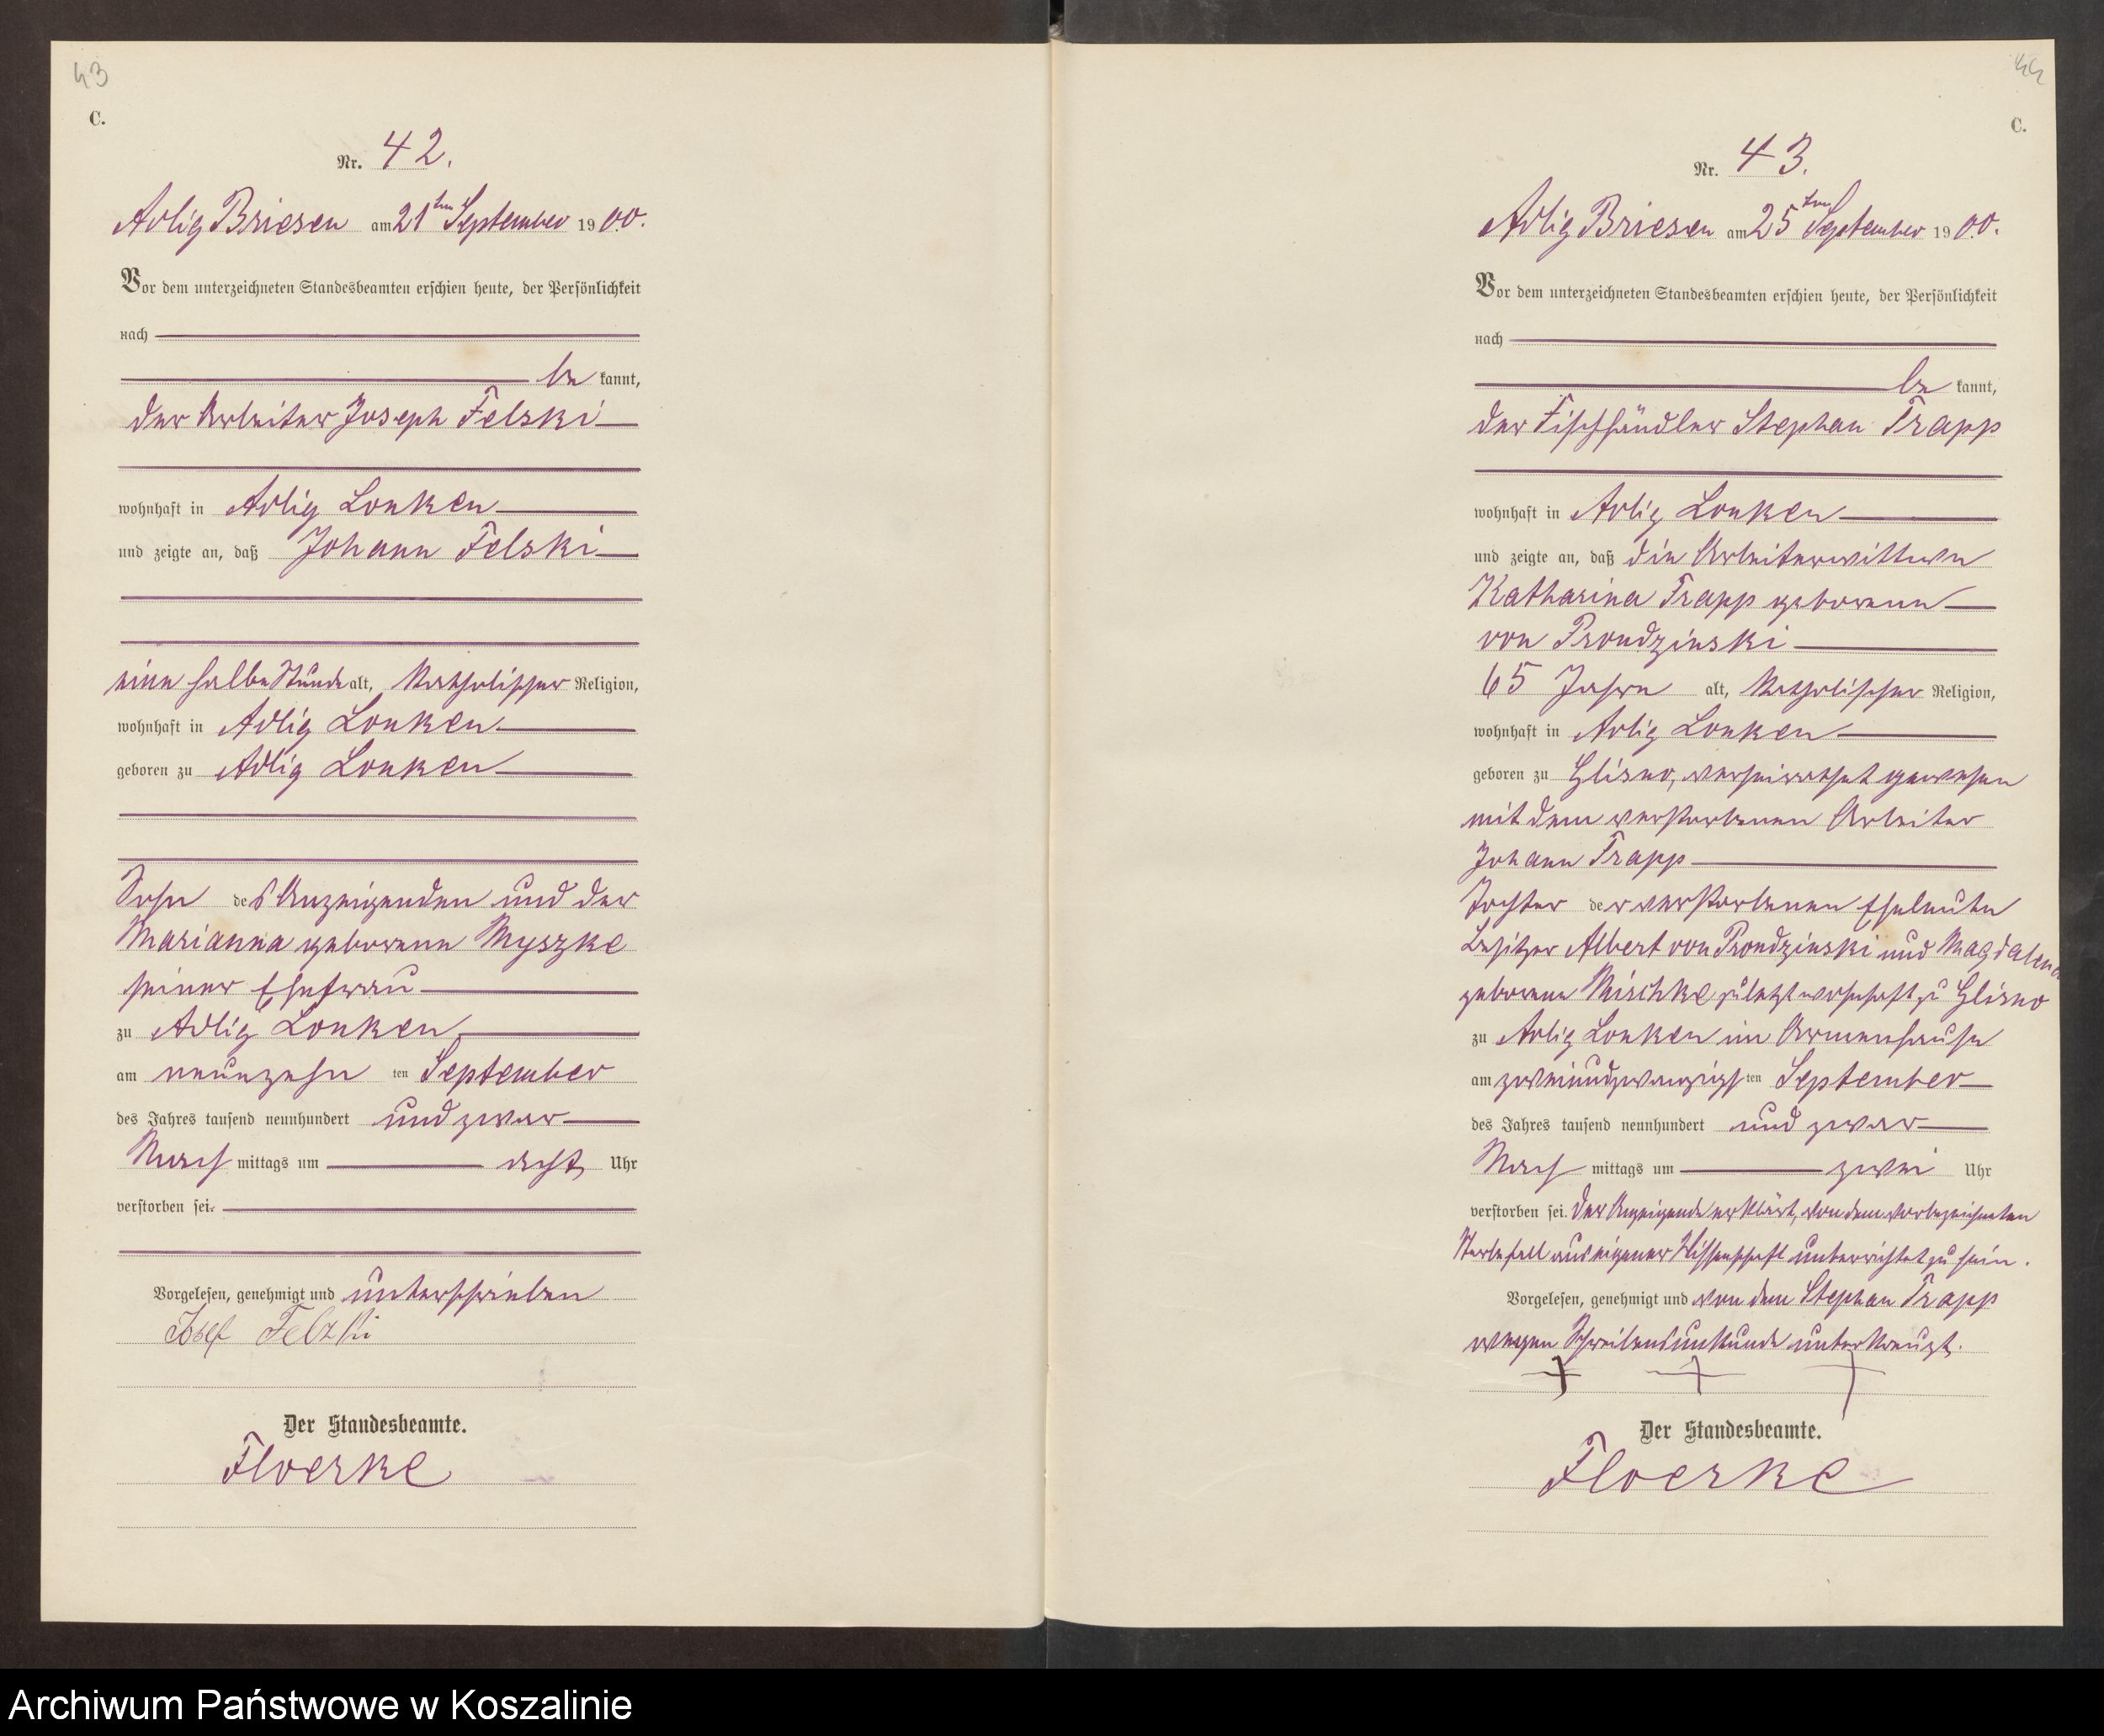 43
C.
Nr. 42.
Adlig Briesen am 21ten September 1900.
Vor dem unterzeichneten Standesbeamten erschien heute, der Persönlichkeit
nach
be kannt,
der Arbeiter Joseph Felski
wohnhaft in Adlig Lonken
und zeigte an, daß Johann Felski
eine halbe Stunde alt, katholischer Religion,
wohnhaft in Adlig Lonken
geboren zu Adlig Lonken
Sohn des Anzeigenden und der
Marianna geborene Myszke
seiner Ehefrau
zu Adlig Lonken
am neunzehn ten September
des Jahres tausend neunhundert und zwar
Nach mittags um acht Uhr
verstorben sei.
Vorgelesen, genehmigt und unterschrieben
Josef Felzki
Der Standesbeamte.
Floerke
44
C.
Nr. 43.
Adlig Briesen am 25ten September 1900.
Vor dem unterzeichneten Standesbeamten erschien heute, der Persönlichkeit
nach
be kannt,
der Fischhändler Stephan Trapp
wohnhaft in Adlig Lonken
und zeigte an, daß die Arbeiterwittwe
Katharina Trapp geborene
von Prondzinski
65 Jahre alt, katholischer Religion,
wohnhaft in Adlig Lonken
geboren zu Glisno, verheirathet gewesen
mit dem verstorbenen Arbeiter
Johann Trapp
Tochter der verstorbenen Eheleute
Besitzer Albert von Prondzinski und Magdalena
geborene Mischke zuletzt wohnhaft zu Glisno
zu Adlig Lonken im Armenhause
am zweiundzwanzigsten September
des Jahres tausend neunhundert und zwar
Nach mittags um zwei Uhr
verstorben sei. Der Anzeigende erklärt, von dem vorbezeichneten
Sterbefall aus eigener Wissenschaft unterrichtet zu sein.
Vorgelesen, genehmigt und von dem Stephan Trapp
wegen Schreibensunkunde unterkreuzt.
+ + +
Der Standesbeamte.
Floerke
Archiwum Państwowe w Koszalinie